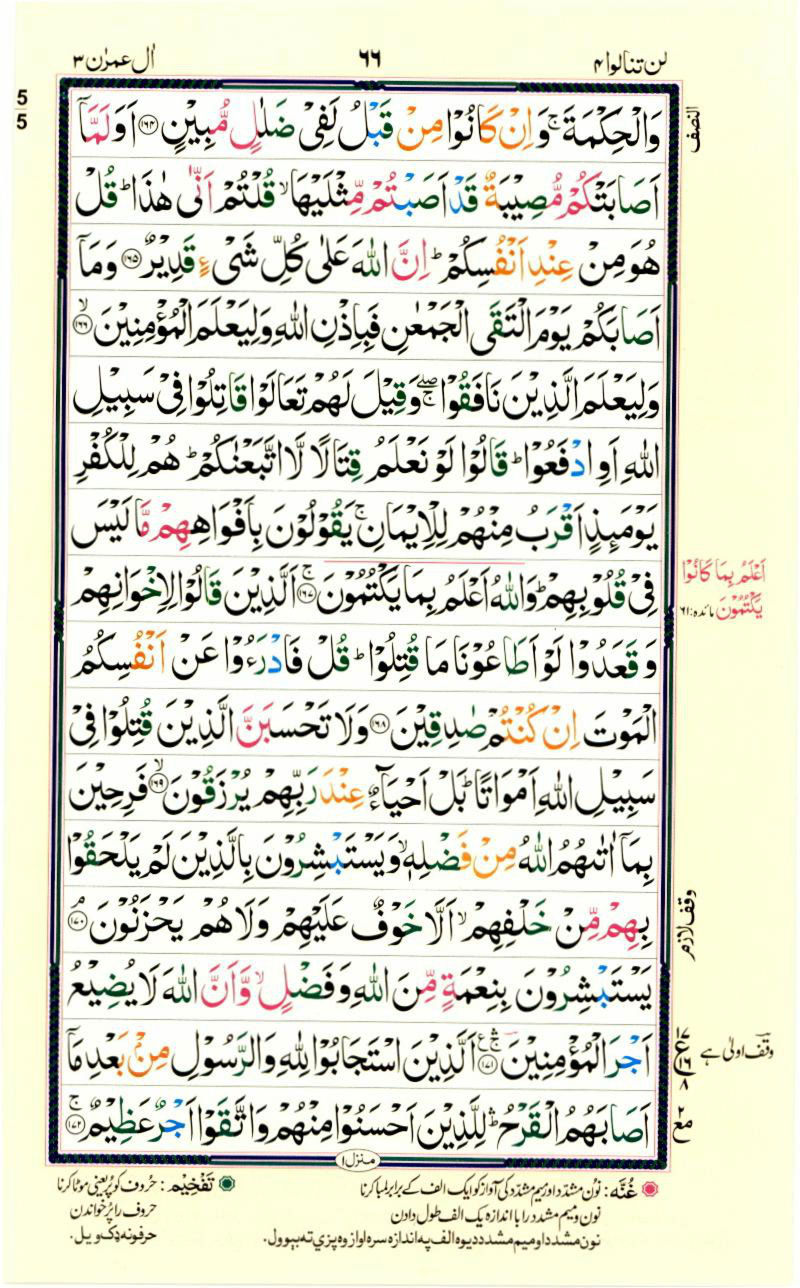 لن تنالوا ۴
۶۶
اٰل عمرٰن ۳
5
5
النصف
وَالْحِكْمَةَ ۚ وَاِنْ كَانُوْا مِنْ قَبْلُ لَفِیْ ضَلٰلٍ مُّبِیْنٍ ﴿۱۶۴﴾ اَوَلَمَّاۤ
اَصَابَتْكُمْ مُّصِیْبَةٌ قَدْ اَصَبْتُمْ مِّثْلَیْهَا ۙ قُلْتُمْ اَنّٰی هٰذَا ؕ قُلْ
هُوَ مِنْ عِنْدِ اَنْفُسِكُمْ ؕ اِنَّ اللّٰهَ عَلٰی كُلِّ شَیْءٍ قَدِیْرٌ ﴿۱۶۵﴾ وَمَاۤ
اَصَابَكُمْ یَوْمَ الْتَقَی الْجَمْعٰنِ فَبِاِذْنِ اللّٰهِ وَلِیَعْلَمَ الْمُؤْمِنِیْنَ ﴿۱۶۶﴾ ۙ
وَلِیَعْلَمَ الَّذِیْنَ نَافَقُوْا ۖۚ وَقِیْلَ لَهُمْ تَعَالَوْا قَاتِلُوْا فِیْ سَبِیْلِ
اللّٰهِ اَوِ ادْفَعُوْا ؕ قَالُوْا لَوْ نَعْلَمُ قِتَالًا لَّا اتَّبَعْنٰكُمْ ؕ هُمْ لِلْكُفْرِ
یَوْمَىِٕذٍ اَقْرَبُ مِنْهُمْ لِلْاِیْمَانِ ۚ یَقُوْلُوْنَ بِاَفْوَاهِهِمْ مَّا لَیْسَ
فِیْ قُلُوْبِهِمْ ؕ وَاللّٰهُ اَعْلَمُ بِمَا یَكْتُمُوْنَ ﴿۱۶۷﴾ ۚ اَلَّذِیْنَ قَالُوْا لِاِخْوَانِهِمْ
وَقَعَدُوْا لَوْ اَطَاعُوْنَا مَا قُتِلُوْا ؕ قُلْ فَادْرَءُوْا عَنْ اَنْفُسِكُمُ
الْمَوْتَ اِنْ كُنْتُمْ صٰدِقِیْنَ ﴿۱۶۸﴾ وَلَا تَحْسَبَنَّ الَّذِیْنَ قُتِلُوْا فِیْ
سَبِیْلِ اللّٰهِ اَمْوَاتًا ؕ بَلْ اَحْیَآءٌ عِنْدَ رَبِّهِمْ یُرْزَقُوْنَ ﴿۱۶۹﴾ ۙ فَرِحِیْنَ
بِمَاۤ اٰتٰىهُمُ اللّٰهُ مِنْ فَضْلِهٖ ۙ وَیَسْتَبْشِرُوْنَ بِالَّذِیْنَ لَمْ یَلْحَقُوْا
بِهِمْ مِّنْ خَلْفِهِمْ ۙ اَلَّا خَوْفٌ عَلَیْهِمْ وَلَا هُمْ یَحْزَنُوْنَ ﴿۱۷۰﴾ ۘ
یَسْتَبْشِرُوْنَ بِنِعْمَةٍ مِّنَ اللّٰهِ وَفَضْلٍ ۙ وَّاَنَّ اللّٰهَ لَا یُضِیْعُ
اَجْرَ الْمُؤْمِنِیْنَ ﴿۱۷۱﴾ ۛۚ اَلَّذِیْنَ اسْتَجَابُوْا لِلّٰهِ وَالرَّسُوْلِ مِنْۢ بَعْدِ مَاۤ
اَصَابَهُمُ الْقَرْحُ ؕۛ لِلَّذِیْنَ اَحْسَنُوْا مِنْهُمْ وَاتَّقَوْا اَجْرٌ عَظِیْمٌ ﴿۱۷۲﴾ ۚ
اَعْلَمُ بِمَا كَانُوْا
یَكْتُمُوْنَ مائدہ: ۶۱
وقف لازم
۱۷
ع
۱۶
۸
وقف اولیٰ ہے
۲
مع
منزل ۱
غُنَّه: نون مشدّد اور میم مشدّد کی آواز کو ایک الف کے برابر لمبا کرنا
نون و میم مشدد را با اندازہ یک الف طول دادن
نون مشدد او میم مشدد دیوه الف په اندازه سره اواز وه پزې ته بېوول.
تَفْخِیْم: حروف کو پُر یعنی موٹا کرنا
حروف را پُر خواندن
حرفونه ډک ویل.